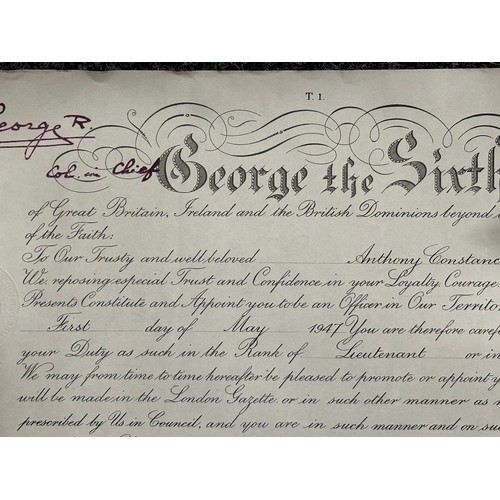 T. 1.
George R.
Col. in Chief
George the Sixth
of Great Britain, Ireland and the British Dominions beyond
of the Faith:
To Our Trusty and well beloved Anthony Constanc
We, reposing especial Trust and Confidence in your Loyalty, Courage,
Presents Constitute and Appoint you to be an Officer in Our Territo
First day of May 1947 You are therefore caref
your Duty as such in the Rank of Lieutenant or in
We may from time to time hereafter be pleased to promote or appoint y
will be made in the London Gazette, or in such other manner as m
prescribed by Us in Council, and you are in such manner and on su